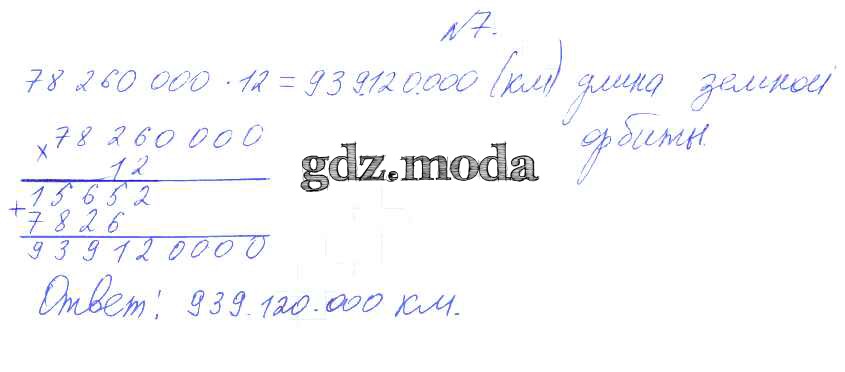 №7.
78 260 000 · 12 = 939.120.000 (км) длина земной
орбиты.
× 78 260 000
12
15652
+ 7826
939120000
gdz.moda
Ответ: 939.120.000 км.